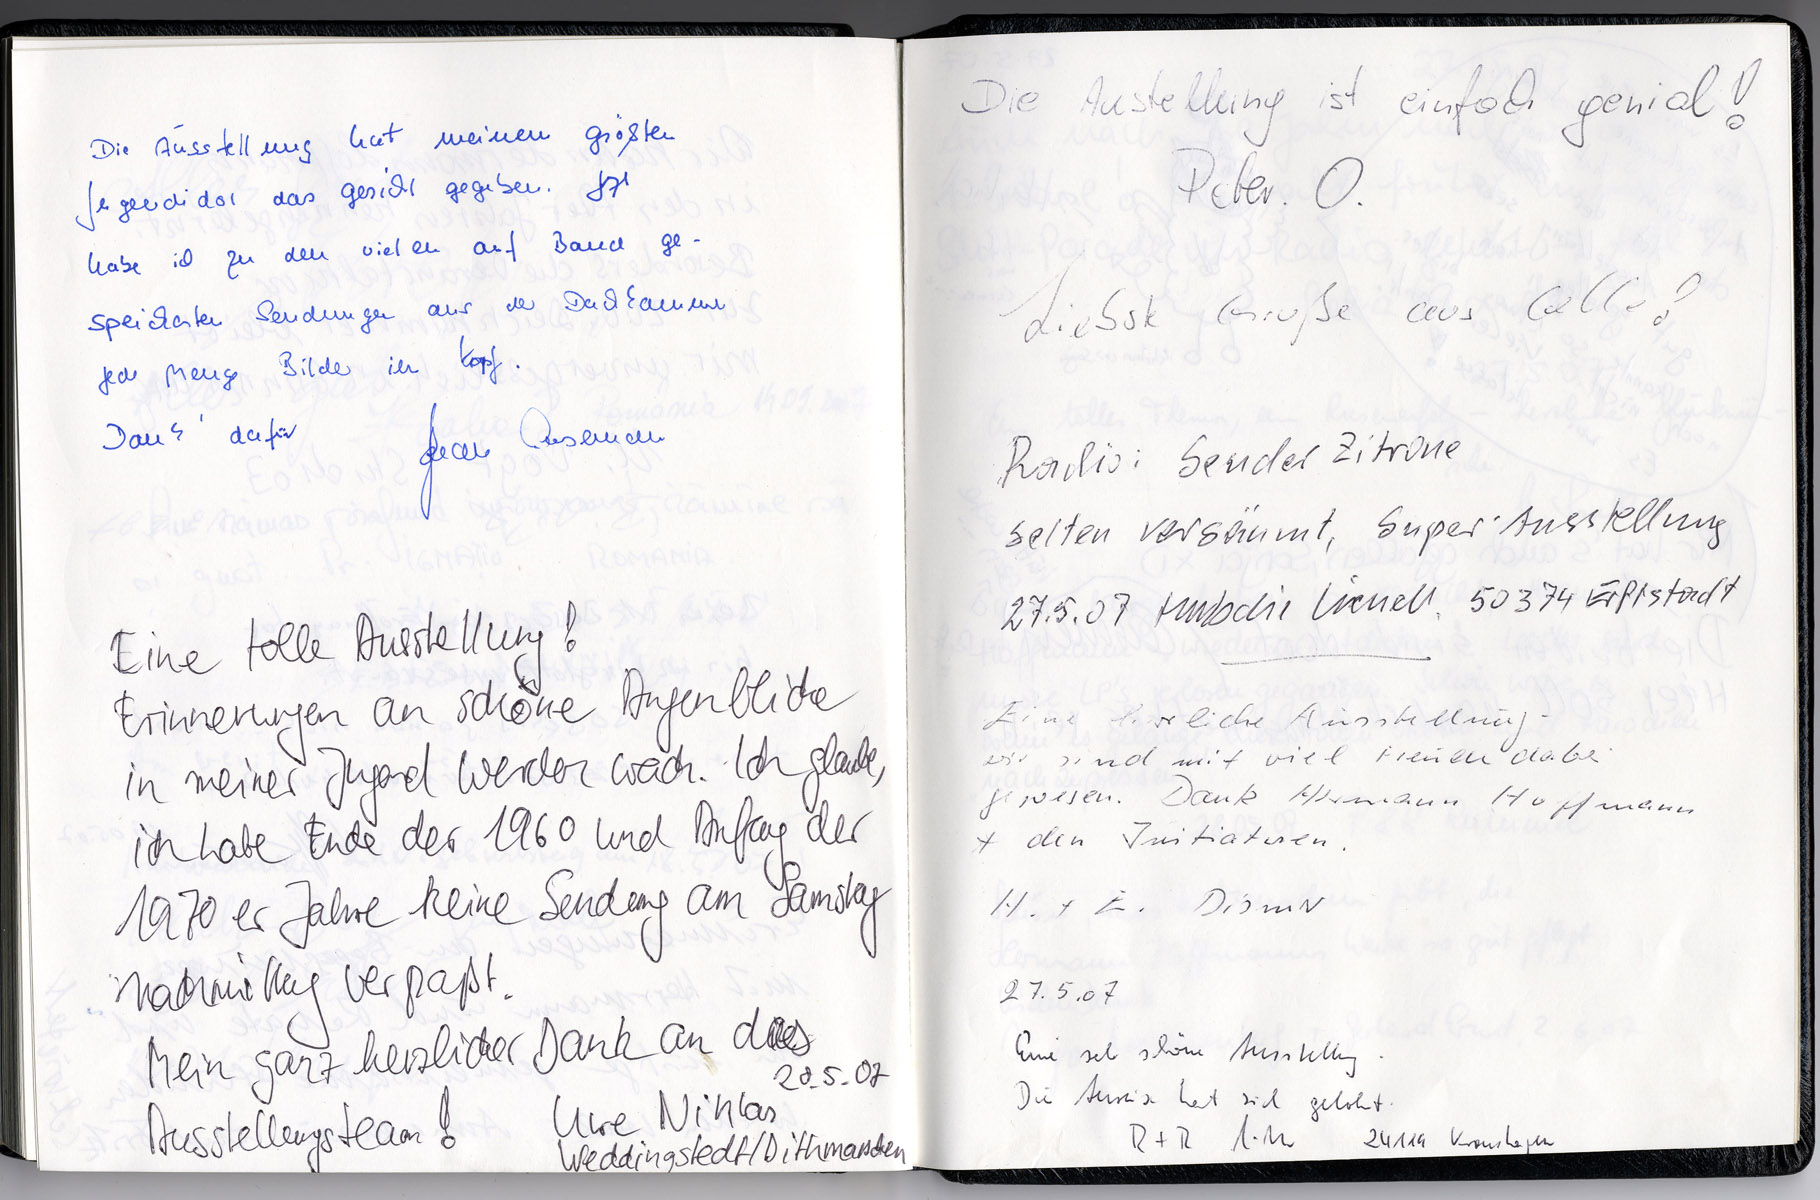 Die Ausstellung hat meinem größten
Jugendidol das Gesicht gegeben. Jetzt
habe ich zu den vielen auf Band ge-
speicherten Sendungen aus der Dachkammer
jede Menge Bilder im Kopf.
Dank dafür
Eine tolle Ausstellung!
Erinnerungen an schöne Augenblicke
in meiner Jugend werden wach. Ich glaube,
ich habe Ende der 1960 und Anfang der
1970er Jahre keine Sendung am Samstag
nachmittag verpaßt.
Mein ganz herzlicher Dank an das
28.5.07
Ausstellungsteam!
Uwe Niklas
Weddingstedt/Dithmarschen
Die Austellung ist einfach genial!
Peter. O.
Liebste Grüße aus Celle!
Radio: Sender Zitrone
selten versäumt, Super-Ausstellung
27.5.07 50374 Erftstadt
Eine herrliche Ausstellung-
wir sind mit viel Freude dabei
gewesen. Dank Hermann Hoffmann
+ den Initiatoren.
H. + E.
27.5.07
Eine sehr schöne Ausstellung.
Die Anreise hat sich gelohnt.
R+R 24119 Kronshagen